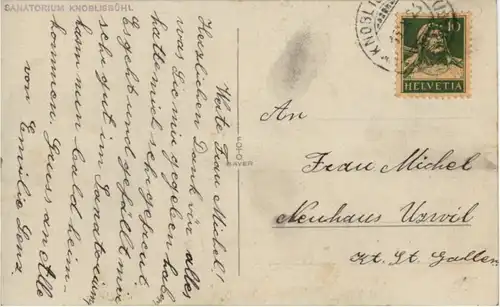 SANATORIUM KNOBLISBÜHL
Werte Frau Michel!
Herzlichen Dank für alles
was Sie mir gegeben habe
hatte mich sehr gefreut.
Es geht und gefällt mir
sehr gut im Sanatorium
kann nun bald heim-
kommen. Gruss an Alle
von Emilie Genz.
FOTO
BAYER
KNOBLI
10
HELVETIA
An
Frau Michel
Neuhaus Uzwil
Kt. St. Gallen